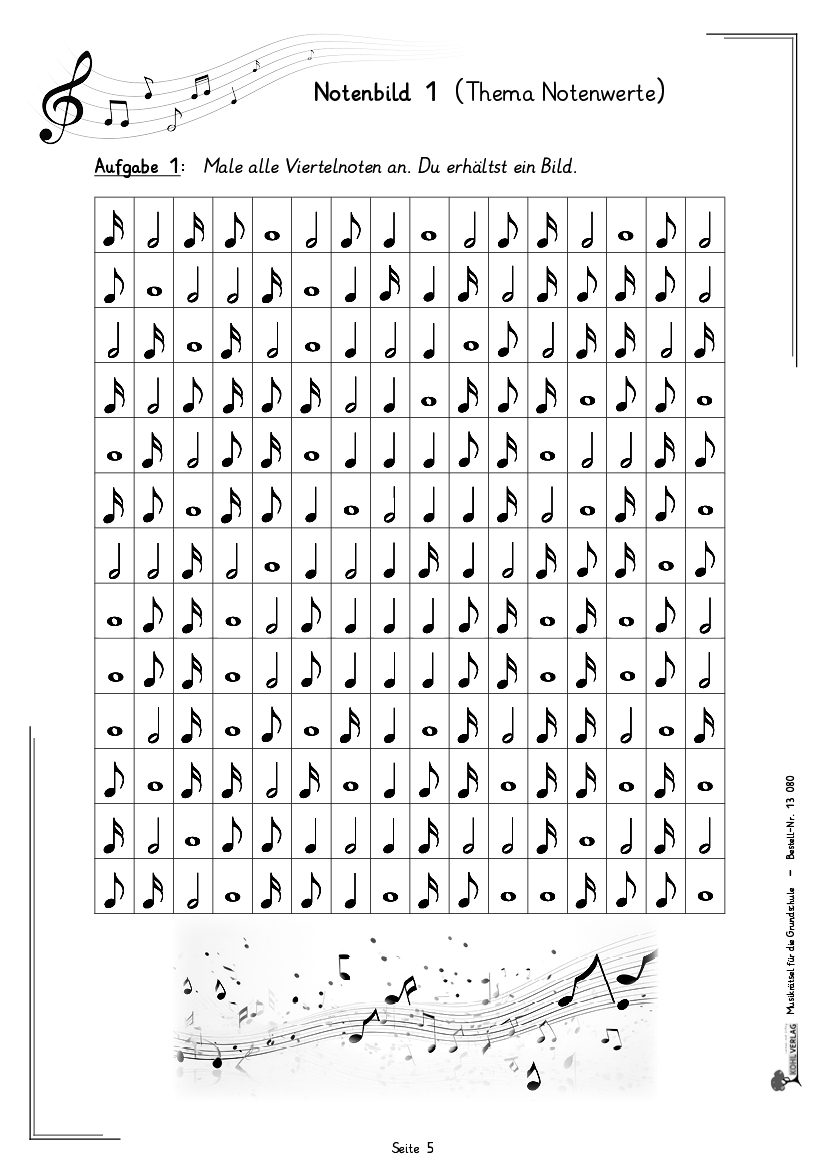 Notenbild 1 (Thema Notenwerte)
Aufgabe 1: Male alle Viertelnoten an. Du erhältst ein Bild.
Musikrätsel für die Grundschule – Bestell-Nr. 13 080
KOHL VERLAG
Seite 5